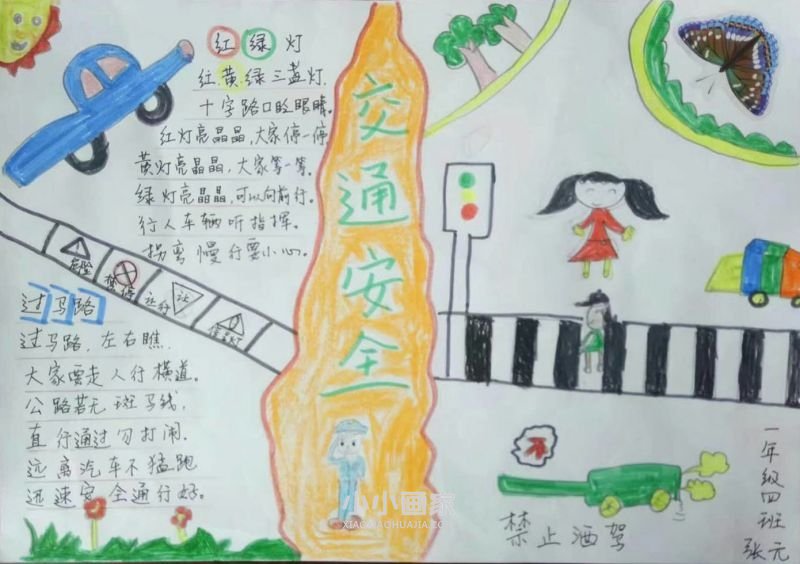 红绿灯
红.黄.绿三盏灯.
十字路口眨眼睛。
红灯亮晶晶,大家停一停
黄灯亮晶晶,大家等一等。
绿灯亮晶晶,可以向前行。
行人车辆听指挥。
拐离慢行要小心。
交通安全
危险
禁停
让行
让
过马路
过马路,左右瞧.
大家要走人行横道。
公路若无斑马线,
直行通过勿打闹.
远离汽车不猛跑
迅速安全通行好。
禁止酒驾
一年级四班
张元
小小画家
XIAOXIAOHUAJIA.COM